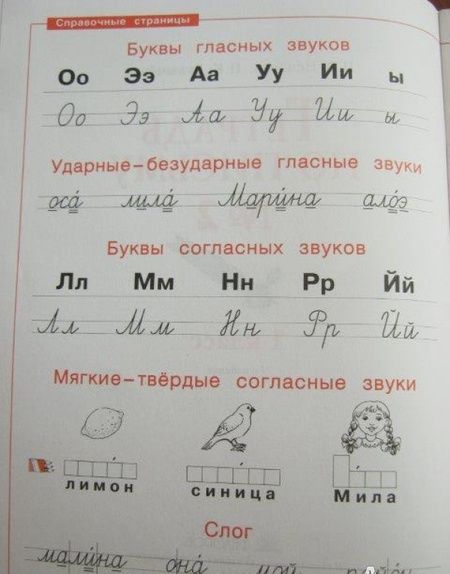 Справочные страницы
Буквы гласных звуков
Оо Ээ Аа Уу Ии ы
Оо Ээ Аа Уу Ии ы
Ударные–безударные гласные звуки
оса́ лила́ Мари́на ало́э
Буквы согласных звуков
Лл Мм Нн Рр Йй
Лл Мм Нн Рр Йй
Мягкие–твёрдые согласные звуки
лимон синица Мила
Слог
мали́на она́ мой